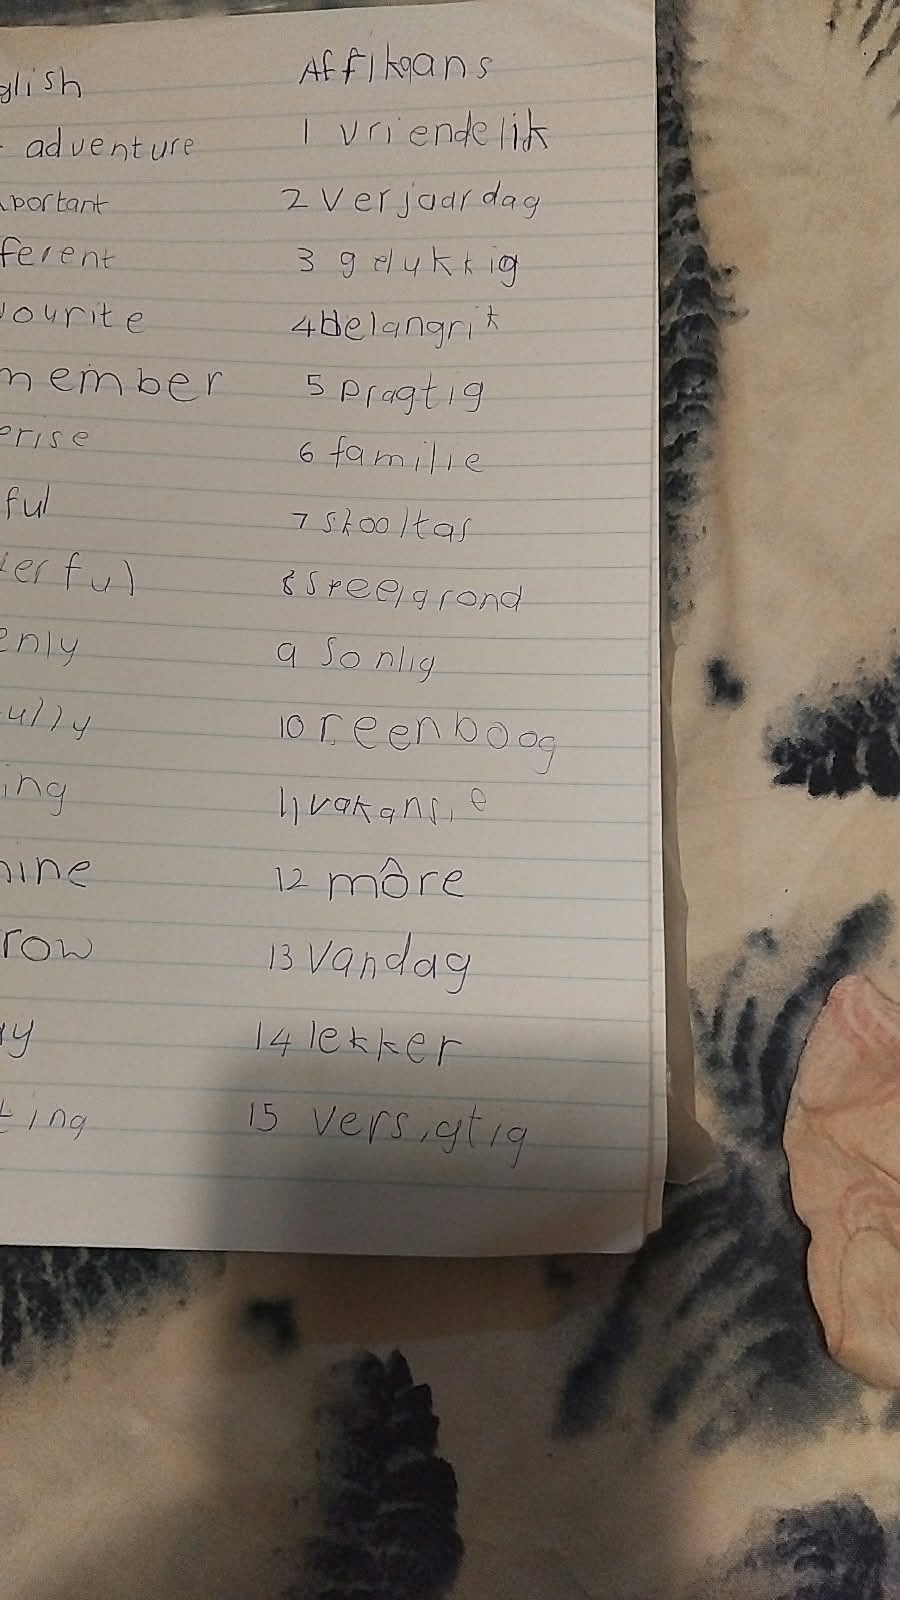 glish Affikaans
adventure 1 vriendelik
portant 2 Verjaardag
ferent 3 gelukkig
vourite 4 belangrik
member 5 pragtig
erise 6 familie
ful 7 skooltas
erful 8 Speelgrond
enly 9 Sonlig
ully 10 reenboog
ing 11 vakansie
hine 12 môre
row 13 Vandag
ay 14 lekker
ting 15 Versigtig